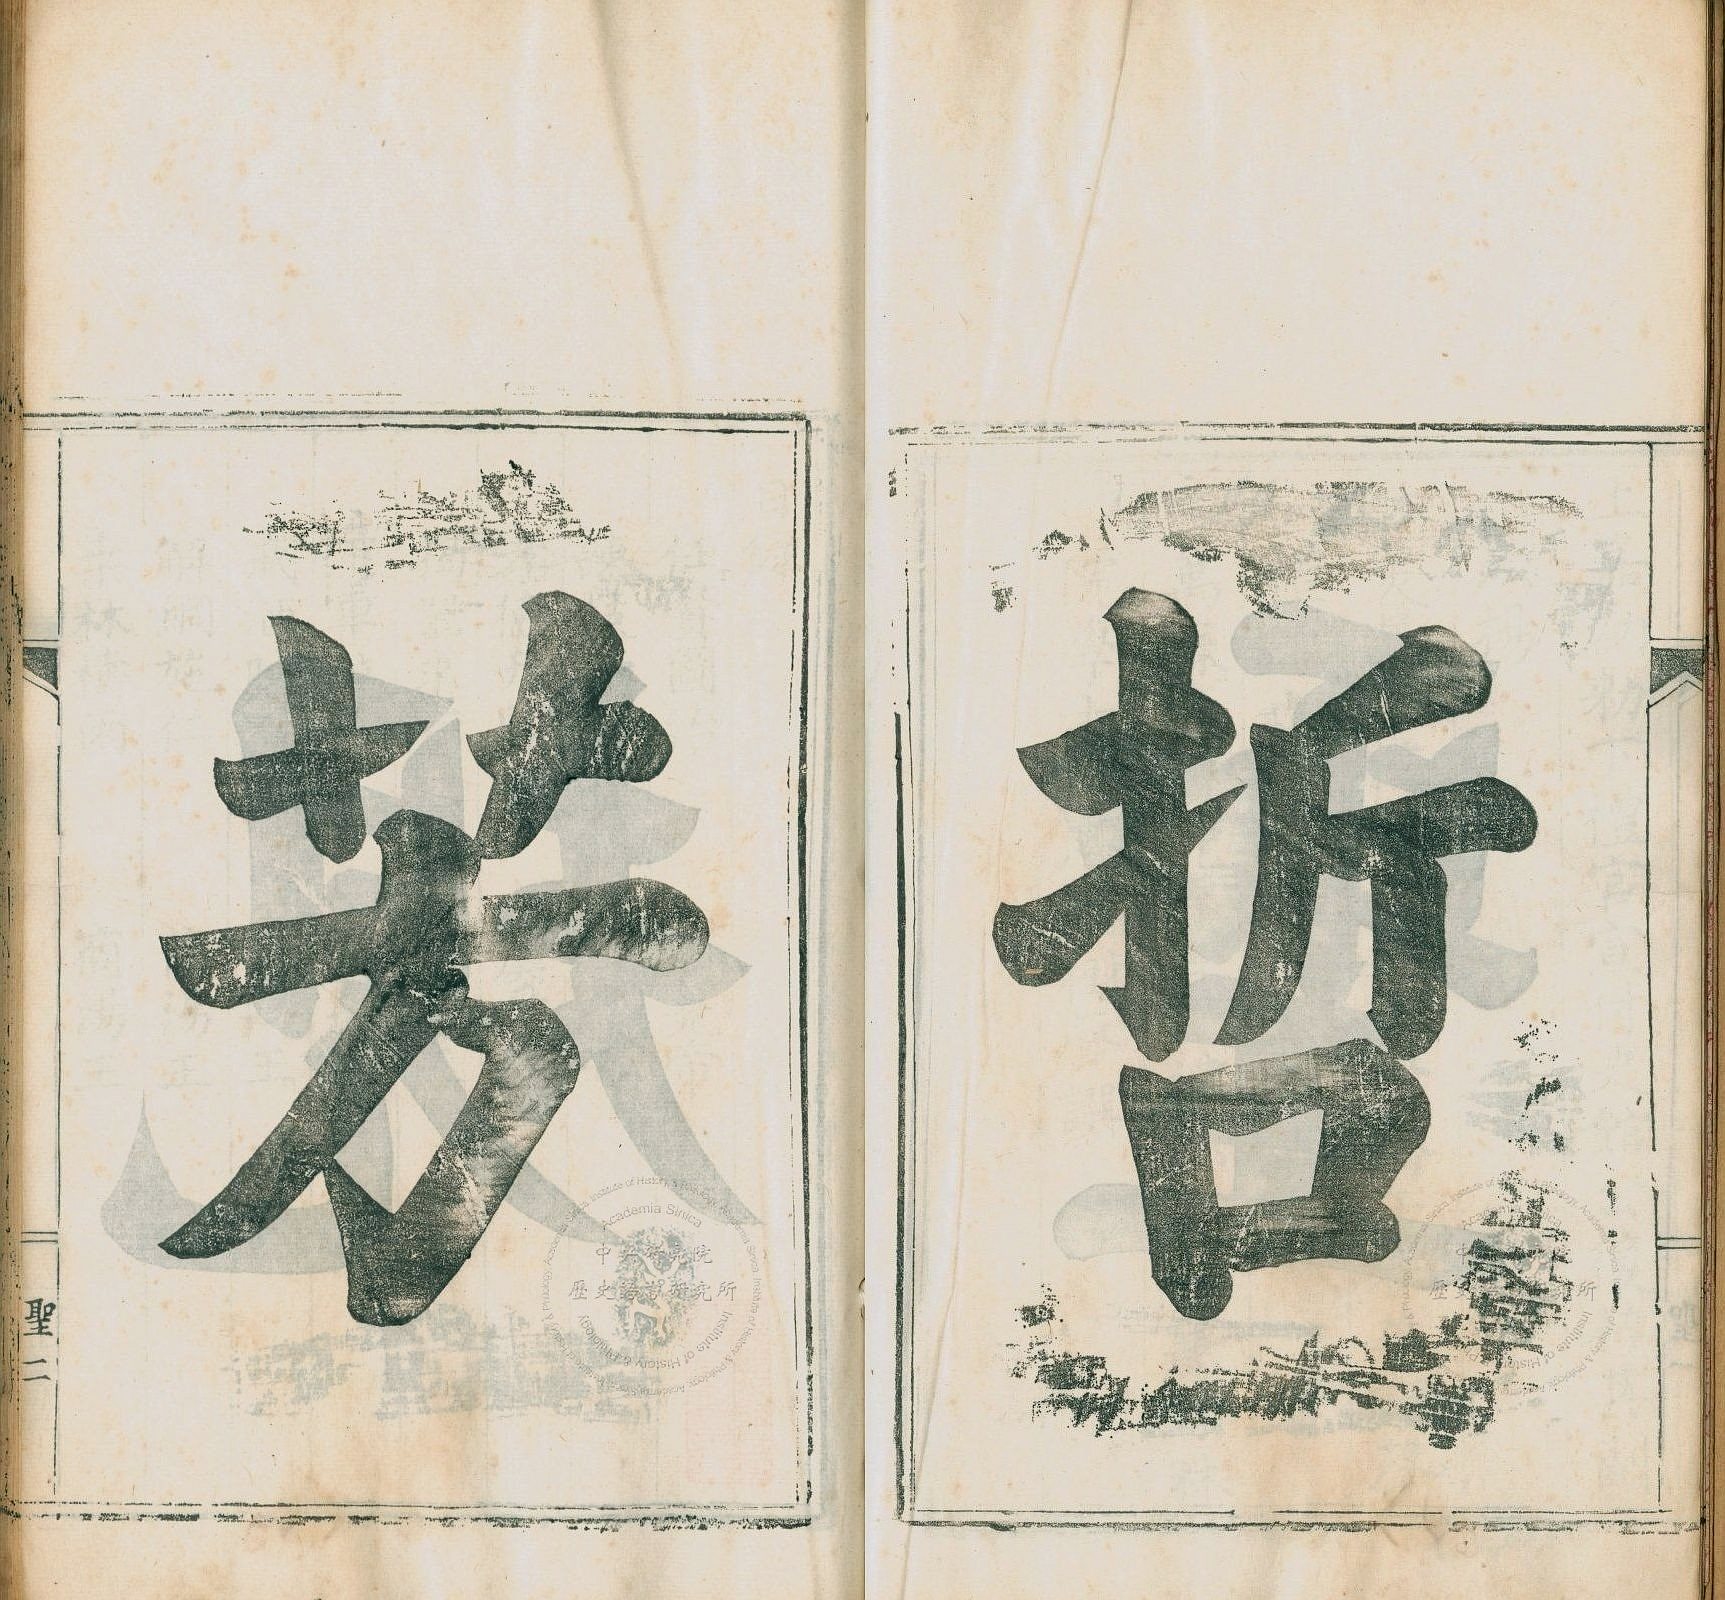 哲
芳
聖 二
Academia Sinica
中央研究院
歷史語言研究所
Institute of History & Philology, Academia Sinica
中央研究院
歷史語言研究所
Institute of History & Philology, Academia Sinica